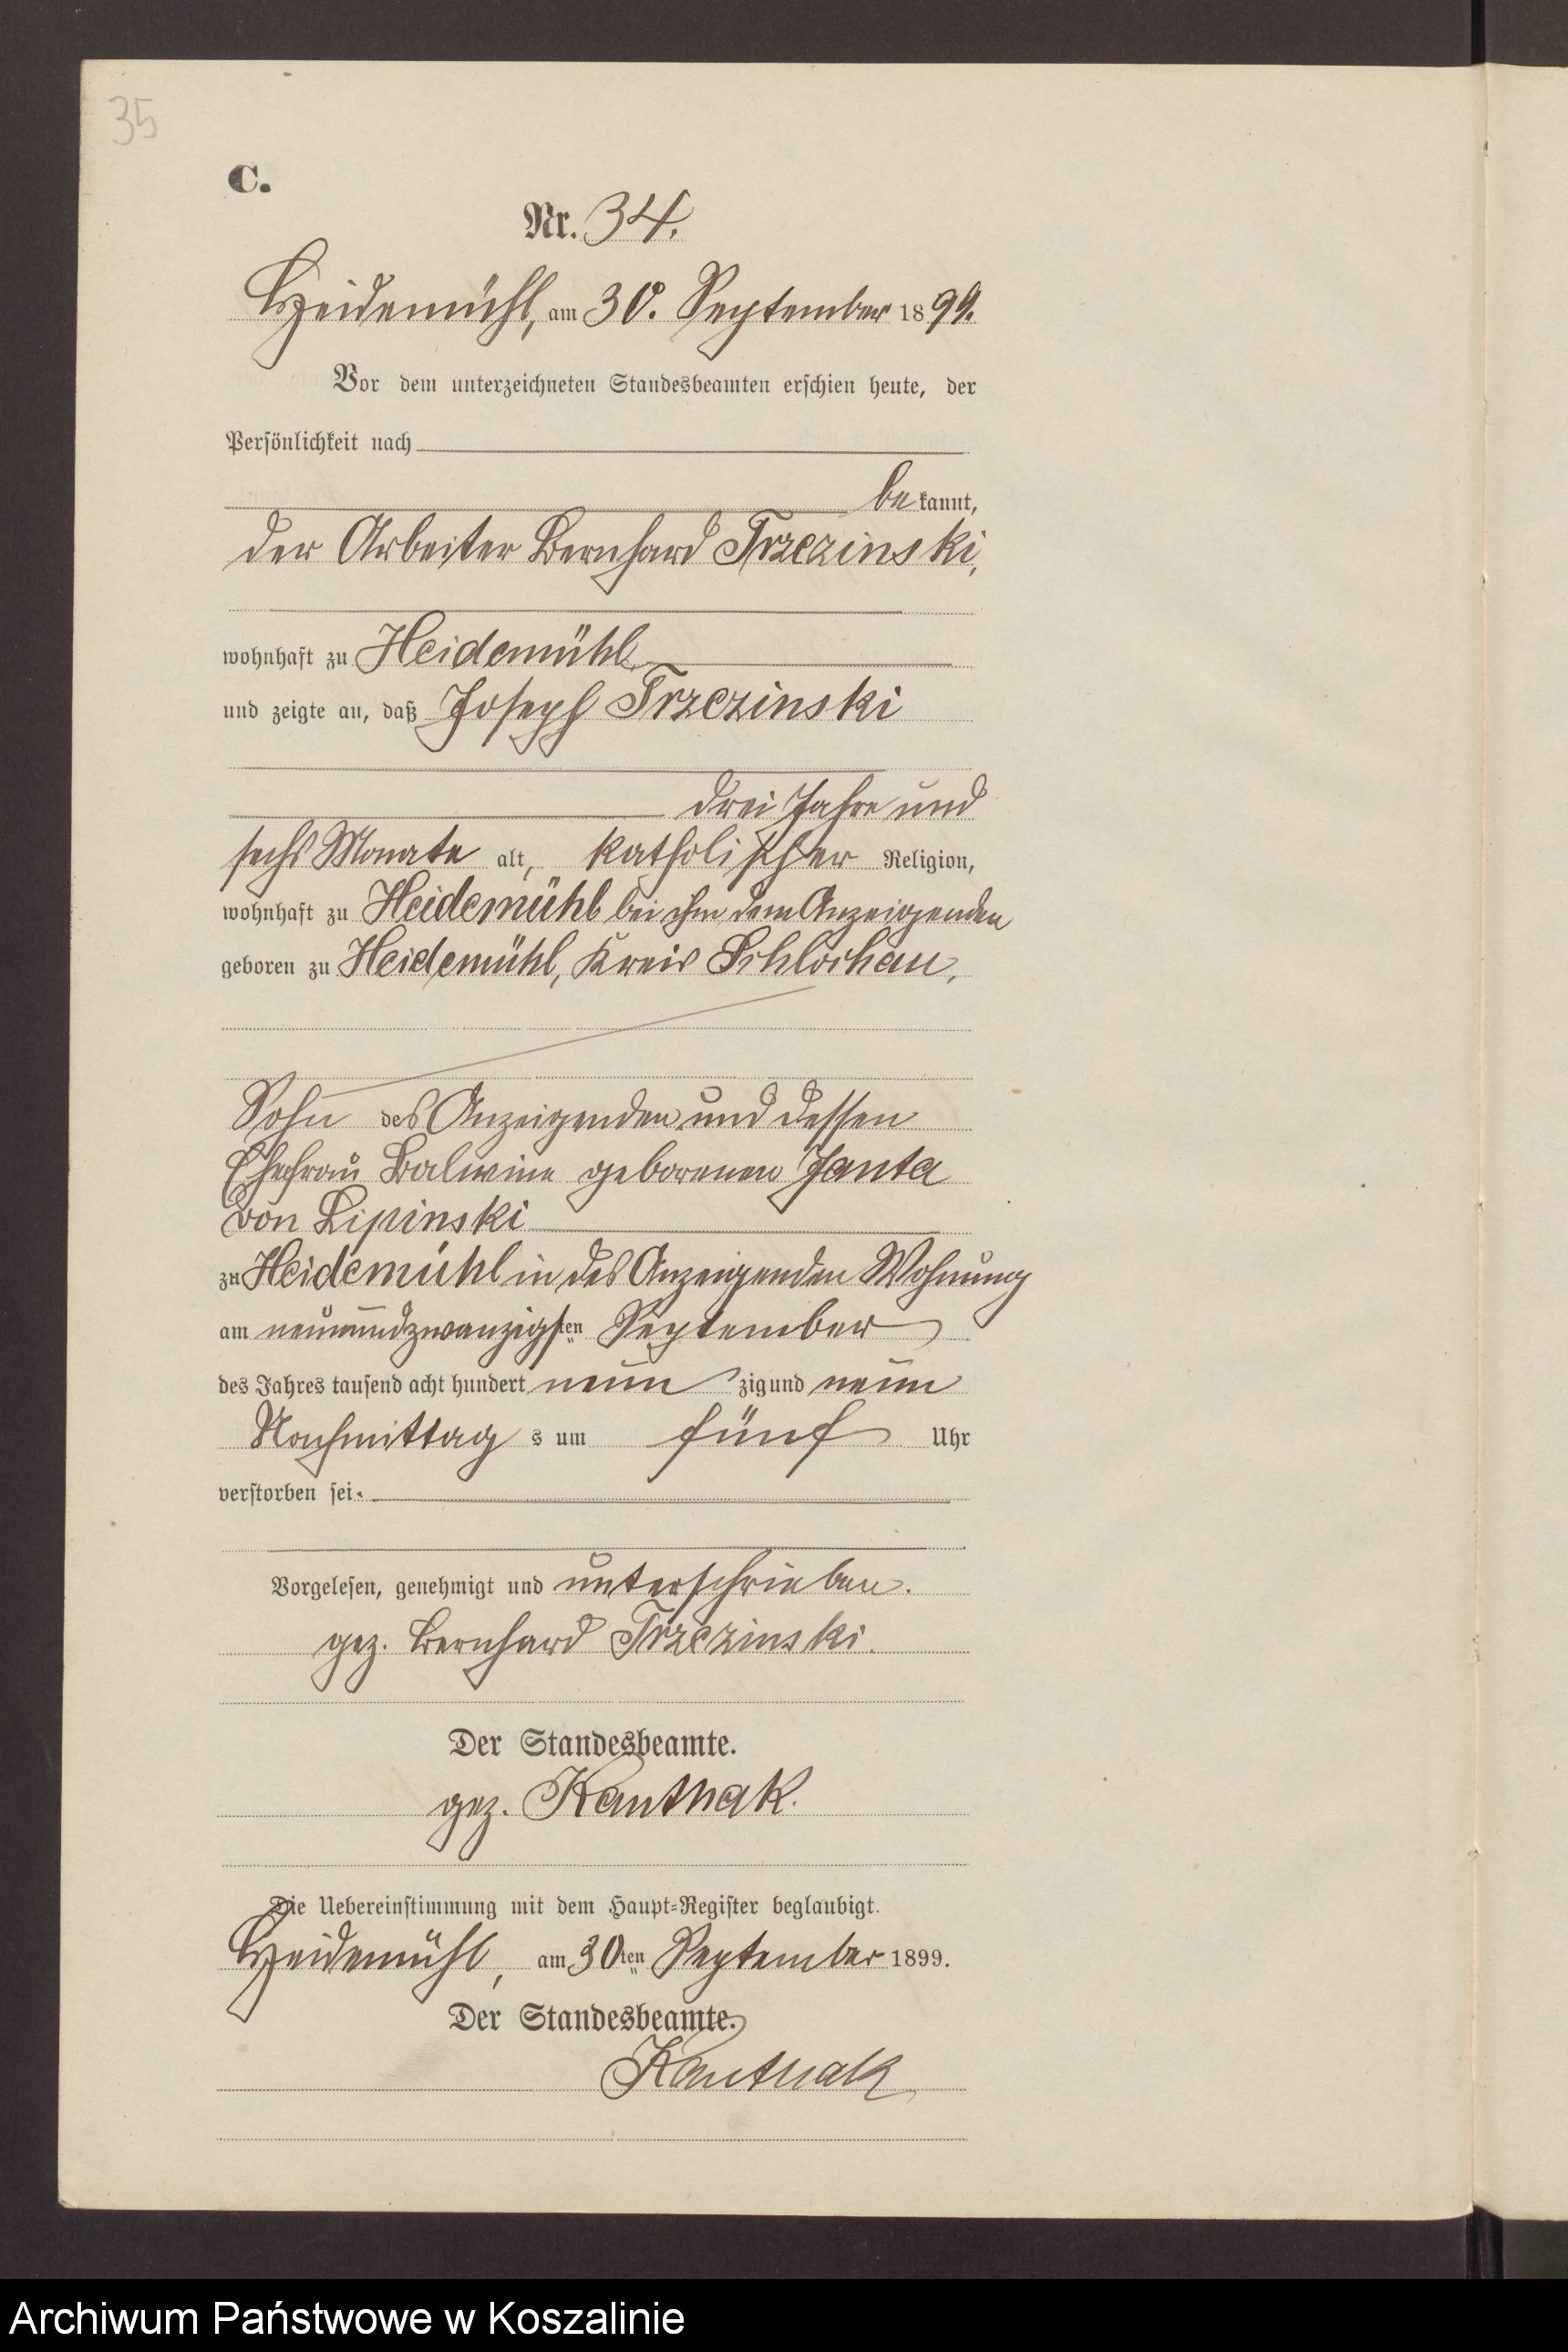 35
C.
Nr. 34.
Heidemühl, am 30. September 1899.
Vor dem unterzeichneten Standesbeamten erschien heute, der
Persönlichkeit nach
bekannt,
der Arbeiter Bernhard Trzezinski,
wohnhaft zu Heidemühl
und zeigte an, daß Joseph Trzezinski
drei Jahre und
sechs Monate alt, katholischer Religion,
wohnhaft zu Heidemühl bei ihm dem Anzeigenden
geboren zu Heidemühl, Kreis Schlochau,
Sohn des Anzeigenden und dessen
Ehefrau Balwine geborenen Janta
von Lipinski
zu Heidemühl in des Anzeigenden Wohnung
am neunundzwanzigsten September
des Jahres tausend acht hundert neunzig und neun
Nachmittags um fünf Uhr
verstorben sei.
Vorgelesen, genehmigt und unterschrieben.
gez. Bernhard Trzezinski.
Der Standesbeamte.
gez. Kanthak.
Die Uebereinstimmung mit dem Haupt-Register beglaubigt.
Heidemühl, am 30ten September 1899.
Der Standesbeamte.
Kanthak
Archiwum Państwowe w Koszalinie